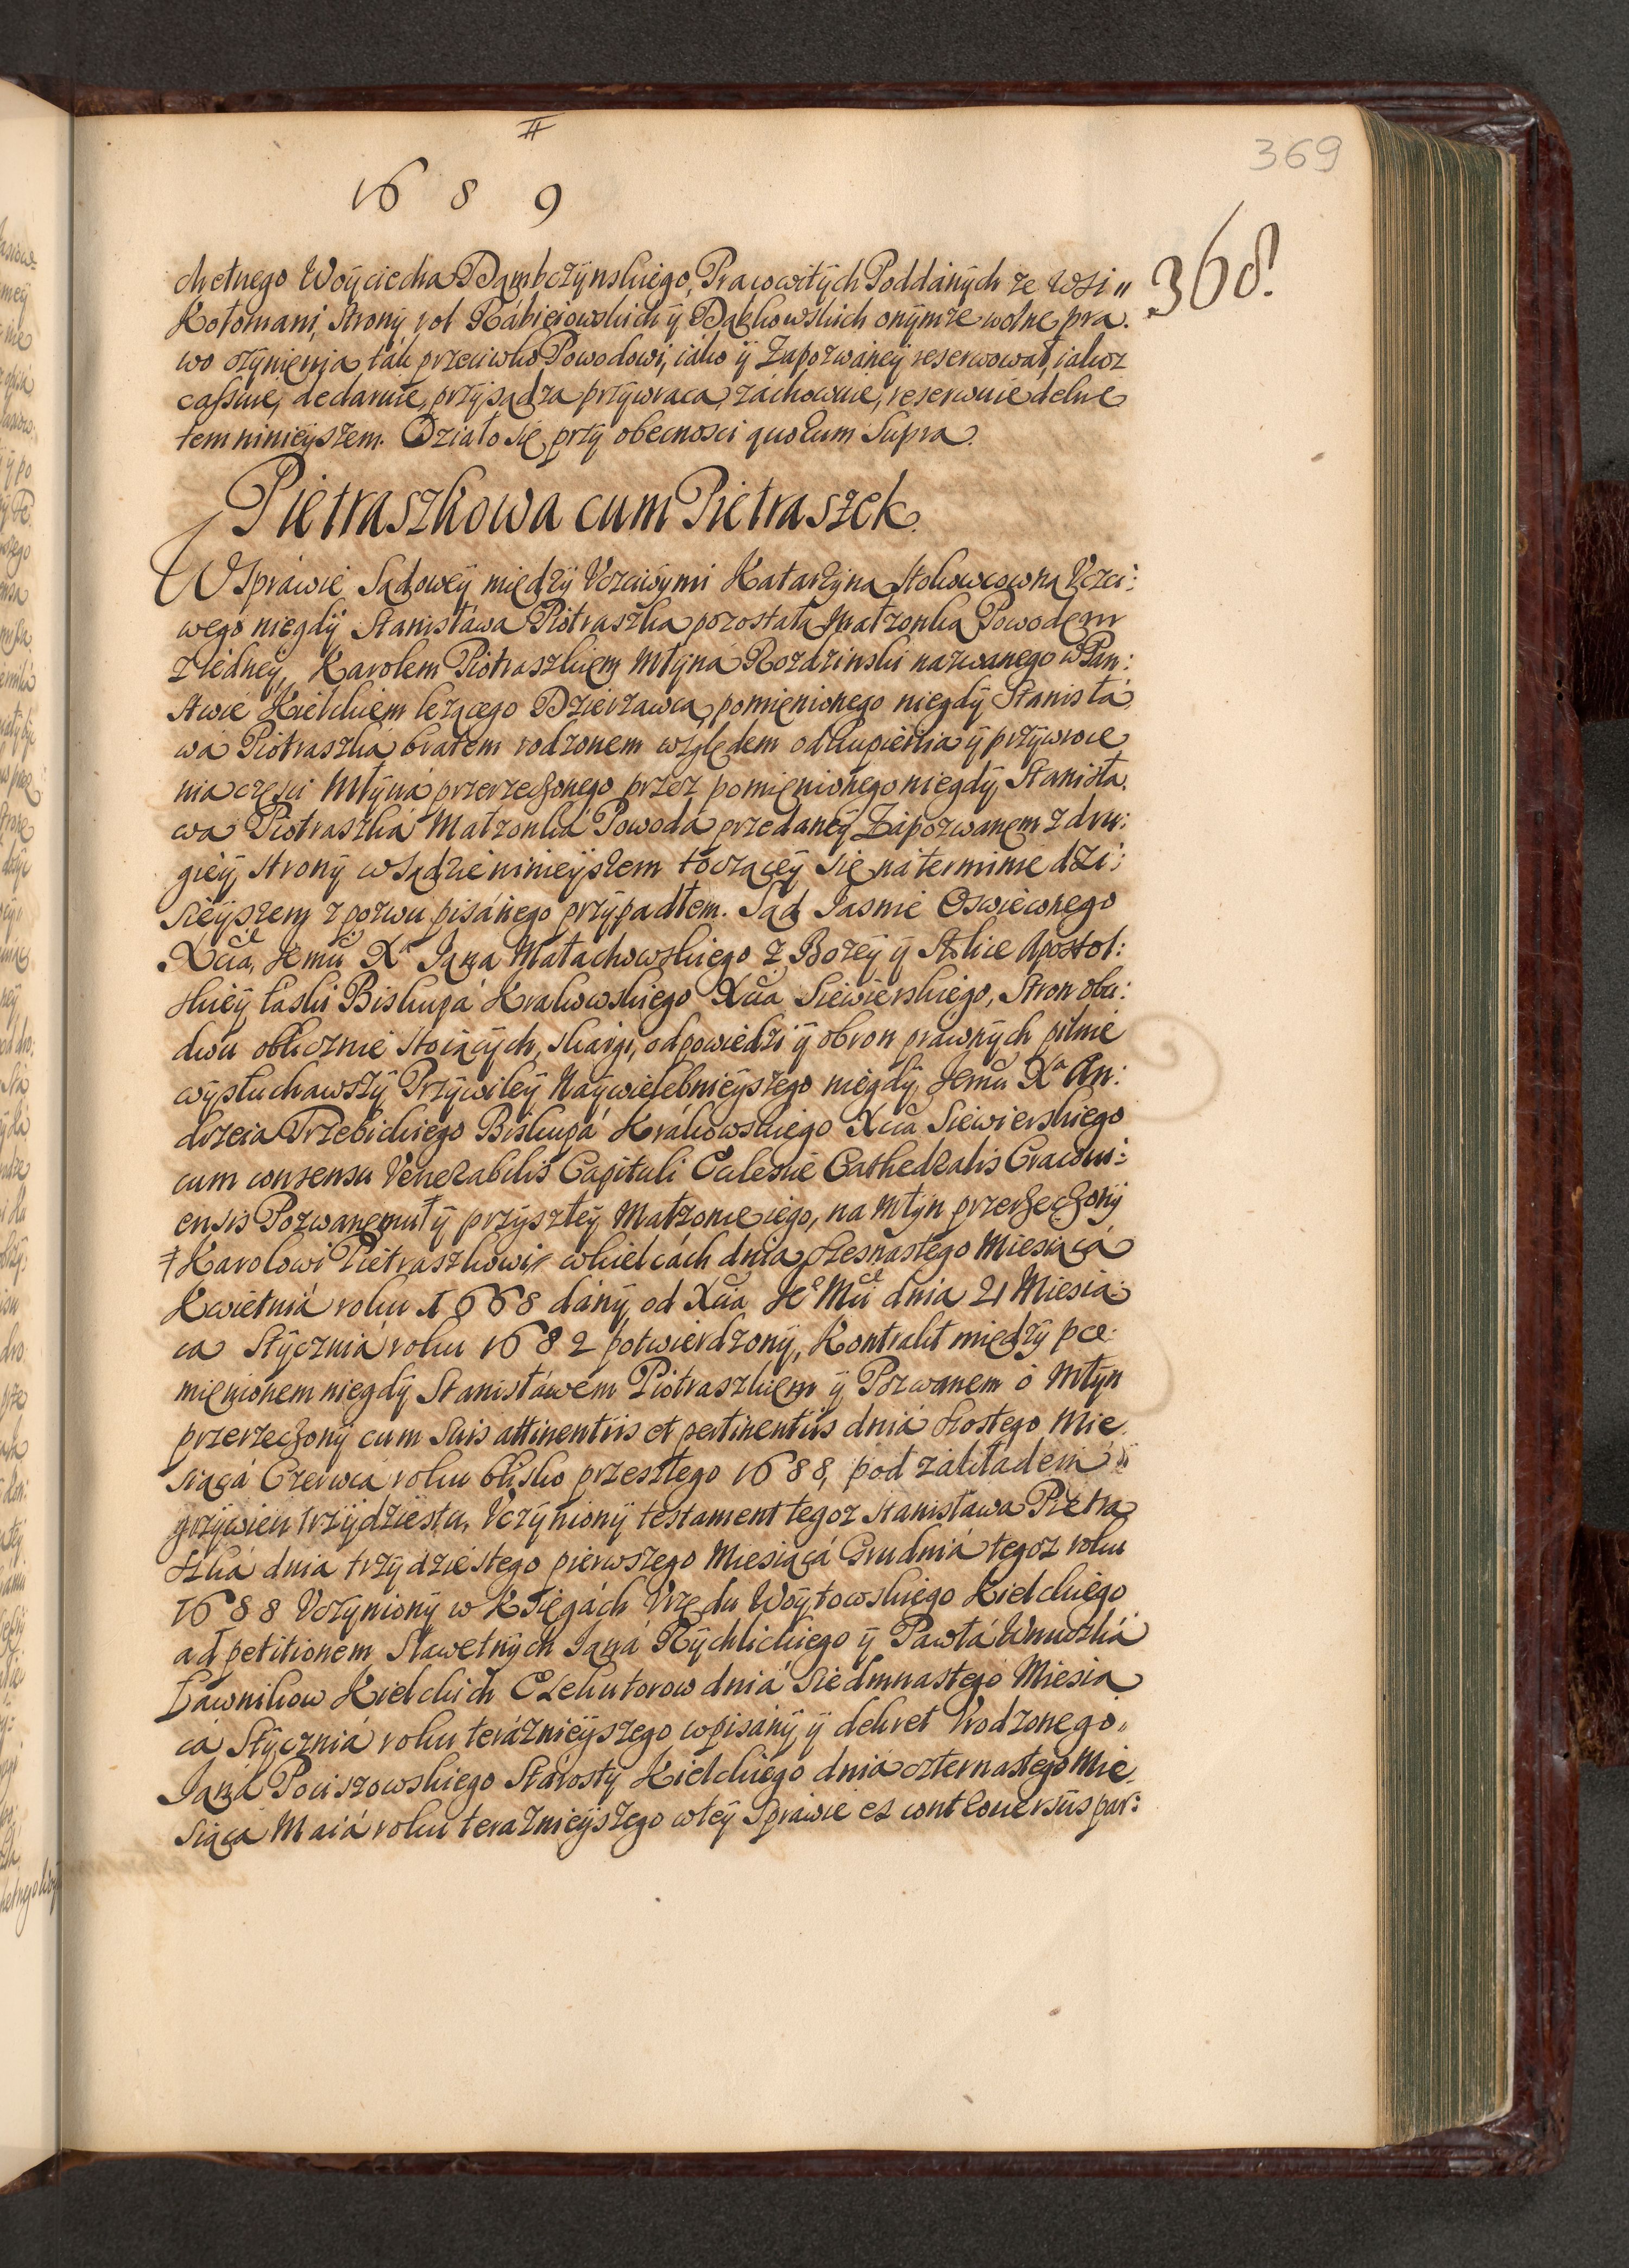 369
1689
368.
chetnego Woyciecha Dąmbczynskiego, Pracowitych Poddánych ze Wsi
Kołomani, Strony rol Rábieiowskich ÿ Dąbkowskich onÿmże wolne pra.
wo czÿnięnia ták przeciwko Powodowi, iáko ÿ Zapozwáneÿ reserwował, iakoz
cassuie, declaruie, przÿsądza przÿwraca, záchowuie, reserwuie dekre
tem ninieÿszem. Działo się przÿ obecnosci quorum Supra.
Pietraszkowa cum Pietraszek.
W Spráwie Sądoweÿ międzÿ Vczciwÿmi Katarzÿną Stokowcowną Vczci:
wego niegdÿ Stanisłáwa Piotraszka pozostałą Małzonką Powodem
z iedneÿ, Karolem Piotraszkiem Młÿná Rozdzinski nazwanego w Pan:
stwie Kieleckiem leżącego Dzierzawcą, pomięnionego niegdÿ Stanisłá
wá Piotraszká bratem rodzonem względem odkupięnia ÿ przÿwroce
nia częsci Młÿná przerzeczonego przez pomięnionego niegdÿ Stanisła.
wa Piotraszká Małzonká Powodá przedaneÿ Zápozwanem z dru:
gieÿ stronÿ w Sądzie ninieÿszem toczączeÿ się ná terminie dzi:
sieÿszem z pozwu pisánego przÿpadłem. Sąd Jasnie Oswieconego
Xcia Jemci Xa Jana Małachowskiego z Bozeÿ ÿ Stolice Apostol:
skieÿ łaski Biskupá Krakowskiego Xcia Siewierskiego, Stron obu:
dwu oblicznie stoiących, skargi, odpowiedzi ÿ obron práwnÿch pilnie
wÿsłuchawszÿ Przÿwileÿ Naÿwielebnieÿszego niegdÿ Jemci Xa An:
drzeia Trzebickiego Biskupá Krákowskiego Xcia Siewierskiego
cum consensu Venerabilis Capituli Eclesiae Cathedralis Cracovi:
ensis Pozwanemu ‡ ÿ przÿszłeÿ Małzonce iego, na Młÿn przerzeczonÿ
‡ Karolowi Pietraszkowi w Kielcách dnia szesnastego Miesiącá
Kwietniá roku 1668 dánÿ, od Xcia Je Mci dnia 21 Miesią:
ca Stÿczniá roku 1682 potwierdzonÿ, Kontrakt międzÿ po:
mięnionem niegdÿ Stanisłáwem Piotraszkiem ÿ Pozwanem o Młÿn
przerzeczonÿ cum suis attinentiis et pertinentiis dniá szostego Mie
siącá Czerwcá roku blisko przeszłego 1688, pod zákładem
grzÿwien trzÿdziestu, Vczÿnionÿ testament tegoz Stanisława Pietra
szká dnia trzÿdziestego pierwszego Miesiącá Grudniá tegoz roku
1688 Vczÿnionÿ w Księgách Vrzędu Woÿtowskiego Kieleckiego
ad petitionem Sławetnÿch Janá Rÿchlickiego ÿ Pawłá Wnuczká
Ławnikow Kieleckich Exekutorow dniá Siedmnastego Miesią
cá Stÿczniá roku teráznieÿszego wpisánÿ, ÿ dekret Vrodzonego
Janá Pociszowskiego Stárostÿ Kieleckiego dniá czternastego Mie
siąca Maiá roku teraznieÿszego w teÿ Spráwie ex controuersiis par: